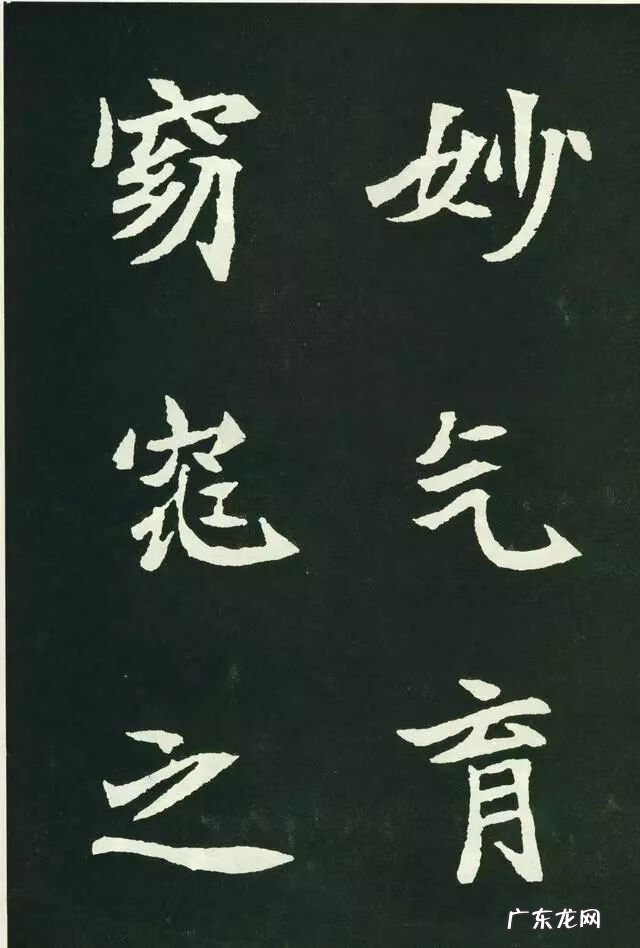 妙气育
窈窕之
广东龙网